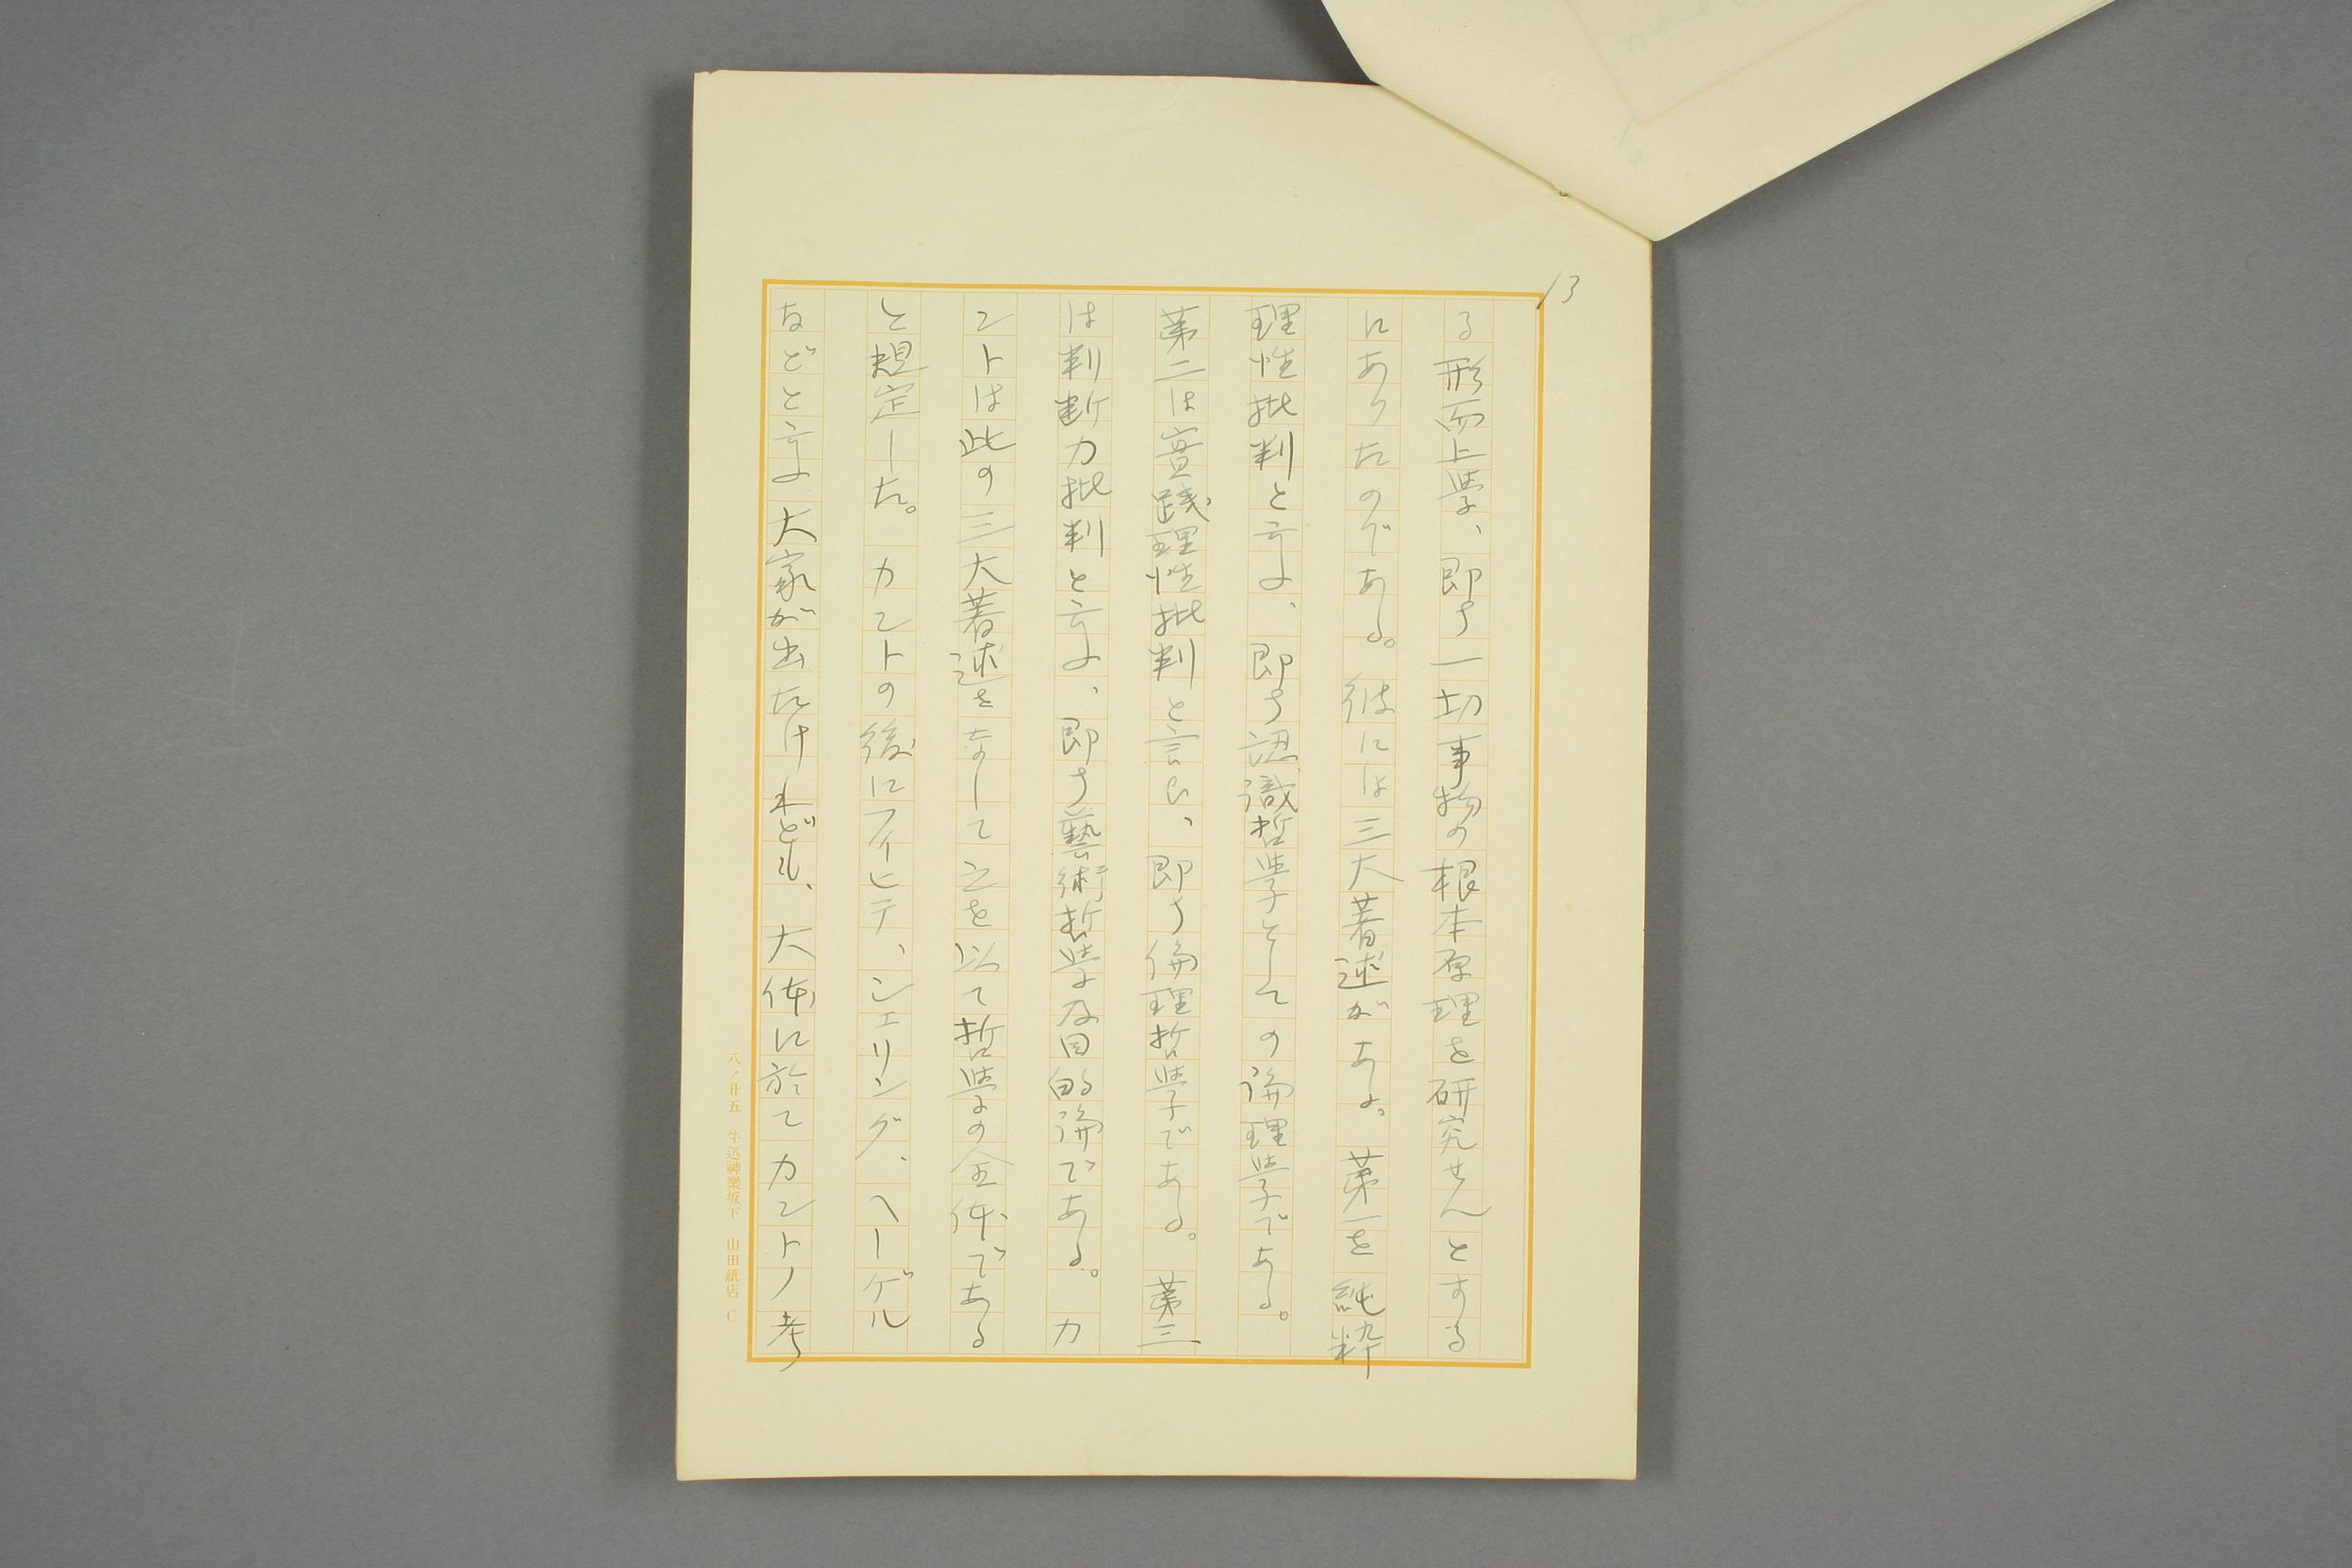 13
る形而上學、即ち一切事物の根本原理を研究せんとする
にあつたのである。彼には三大著述がある。第一を純粋
理性批判と言ふ、即ち認識哲學としての論理学である。
第二は實践理性批判と言ひ、即ち倫理哲学である。第三
は判断力批判と言ふ、即ち藝術哲學及目的論である。カ
ントは此の三大著述をなして之を以て哲學の全体である
と規定した。カントの後にフイヒテ、シェリング、ヘーゲル
などと言ふ大家が出たけれども、大体に於てカントノ考
八ノ廿五 牛込神樂坂下 山田紙店 C